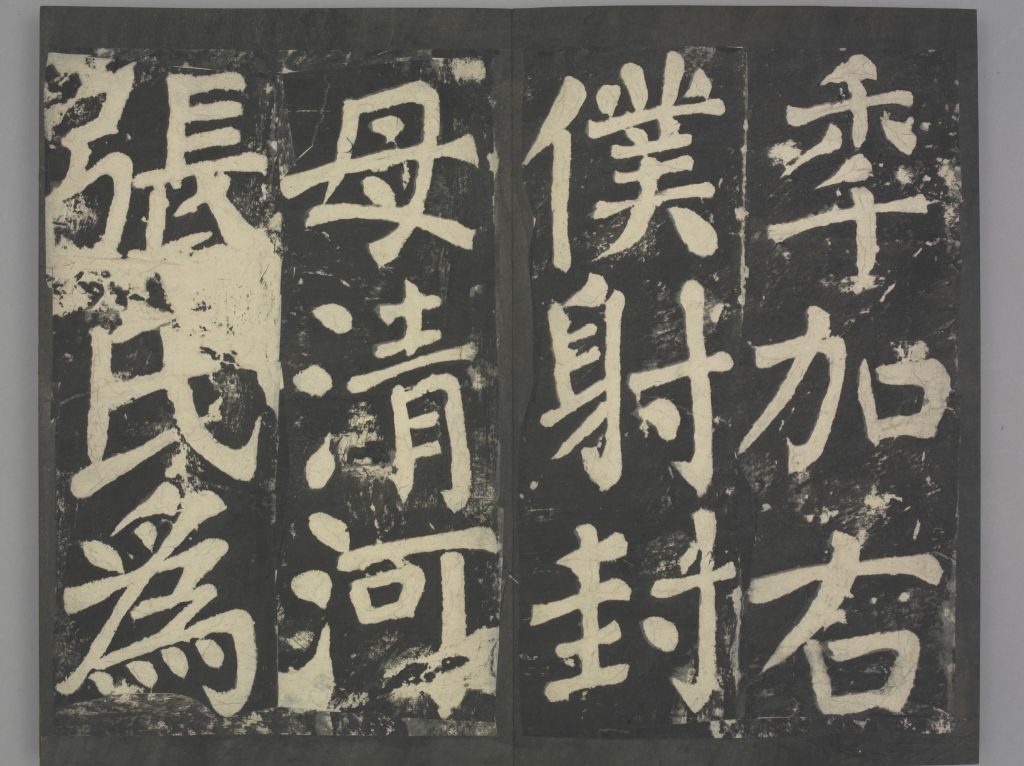 秊加右
僕射封
母清河
張氏為